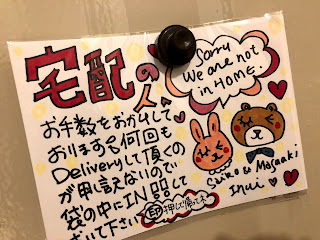 宅配の人へ
Sorry
We are not
in HOME.
お手数をおかけして
おりまする何回も
Deliveryして頂くの
が申し訳ないので
袋の中にIN 品して
おいて下さい
印押して帰ってネ
& Masaaki
Inui